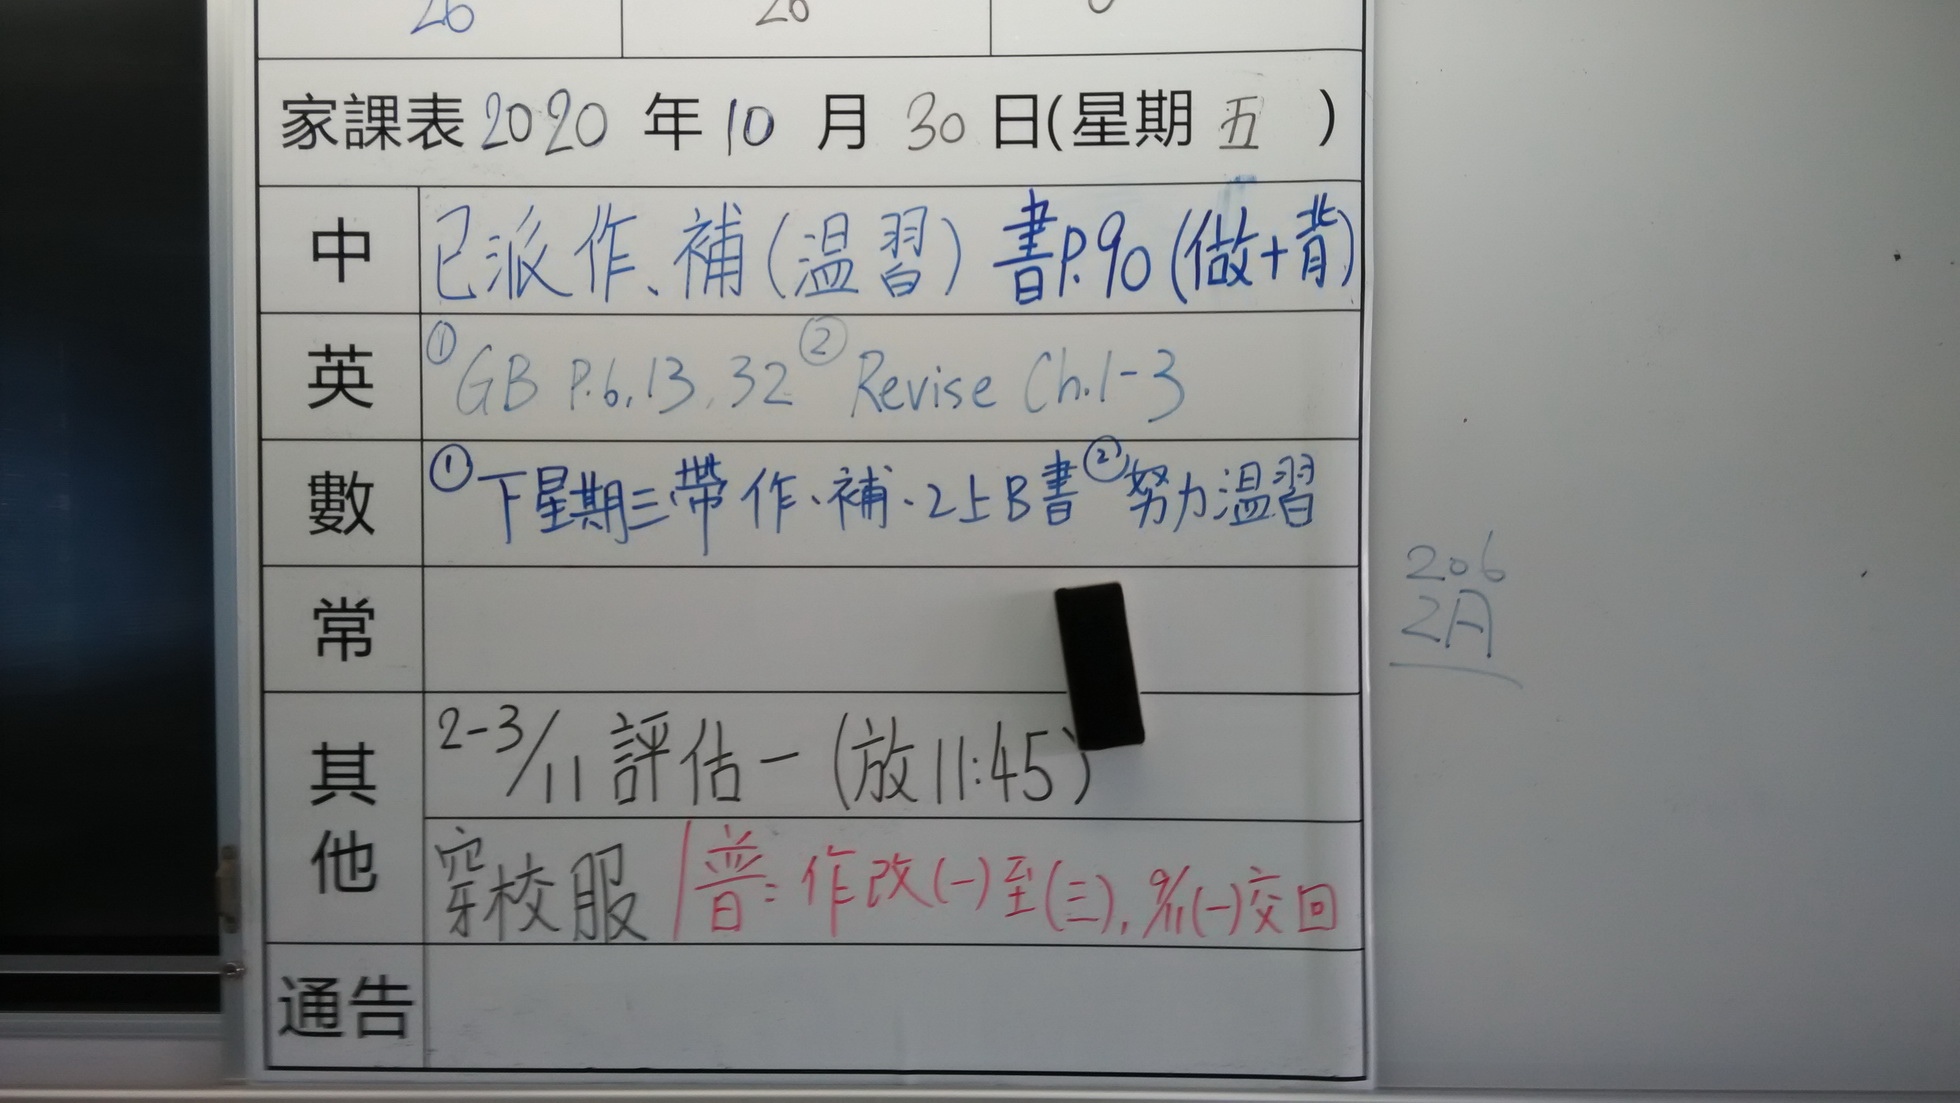 26 26 0
家課表 2020 年 10 月 30 日(星期 五 )
中 已派作、補(温習) 書P.90 (做+背)
英 ①GB P.6, 13, 32 ②Revise Ch.1-3
數 ①下星期三帶作、補、2上B書 ②努力温習
常
其他
2-3/11 評估一 (放11:45)
穿校服 / 普: 作改(一)至(三), 9/11(一)交回
通告
206
2A